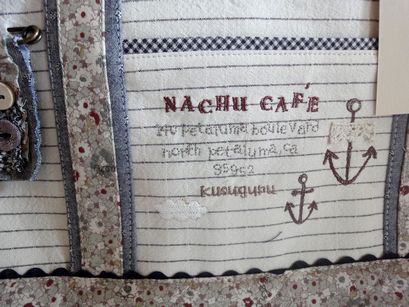 NACHU CAFÉ
140 petaluma boulevard
north petaluma, ca
95952
kusuguru